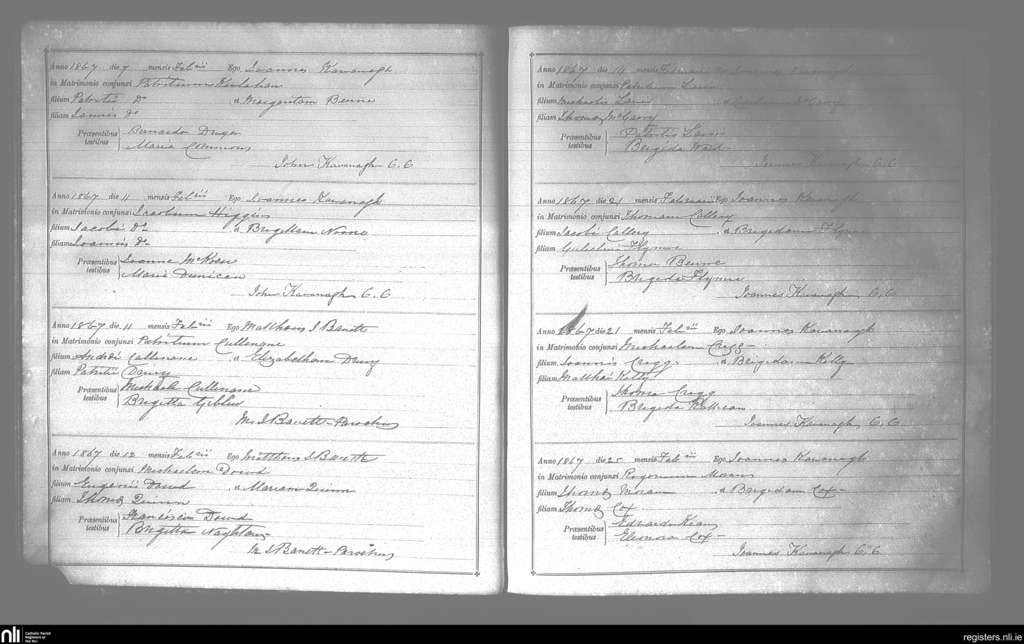 Anno 1867 die 7 mensis Feb rii Ego Joannes Kavanagh
in Matrimonio conjunxi Patritium
filium Patritii do a Margaritam Beirne
filiam Jannis do
Præsentibus testibus Bernardo Dwyer
Maria Commons
John Kavanagh C.C
Anno 1867 die 11 mensis Feb rii Ego Joannes Kavanagh
in Matrimonio conjunxi Jacobum Higgins
filium Jacobi do a Brigittam Noone
filiam Joannis do
Præsentibus testibus Joanne
Maria Dunican
John Kavanagh C.C
Anno 1867 die 11 mensis Feb rii Ego Matthæus J Barrett
in Matrimonio conjunxi Patritium
filium Cullenane a Elizabetham Drury
filiam Patritii Drury
Præsentibus testibus Michaele Cullenane
Brigitta Giblin
M J Barrett Parochus
Anno 1867 die 12 mensis Feb rii Ego Matthæus J Barrett
in Matrimonio conjunxi Michaelem Dowd
filium Eugenii Dowd a Mariam Quinn
filiam Thomæ Quinn
Præsentibus testibus Dowd
Brigitta Naghten
M J Barrett Parochus
Anno 1867 die 14 mensis Februarii Ego
in Matrimonio conjunxi Patritium
filium Michaelis a McGarry
filiam Thomæ McGarry
Præsentibus testibus Patritio
Brigida Ward
Joannes Kavanagh C.C
Anno 1867 die 21 mensis Februarii Ego Joannes Kavanagh
in Matrimonio conjunxi Thomam Callery
filium Jacobi Callery a Brigidam Flynn
filiam Gulielmi Flynn
Præsentibus testibus Thoma Beirne
Brigida Flynn
Joannes Kavanagh C.C
Anno 1867 die 21 mensis Feb rii Ego Joannes Kavanagh
in Matrimonio conjunxi Michaelem Cragg
filium Joannis Cragg a Brigidam Kelly
filiam Matthæi Kelly
Præsentibus testibus Thoma Cragg
Brigida
Joannes Kavanagh C.C
Anno 1867 die 25 mensis Feb rii Ego Joannes Kavanagh
in Matrimonio conjunxi Moran
filium Thomæ Moran a Brigidam Cox
filiam Thomæ Cox
Præsentibus testibus Edvardo
Eleonora Cox
Joannes Kavanagh C.C
nli Catholic Parish Registers at the NLI
registers.nli.ie